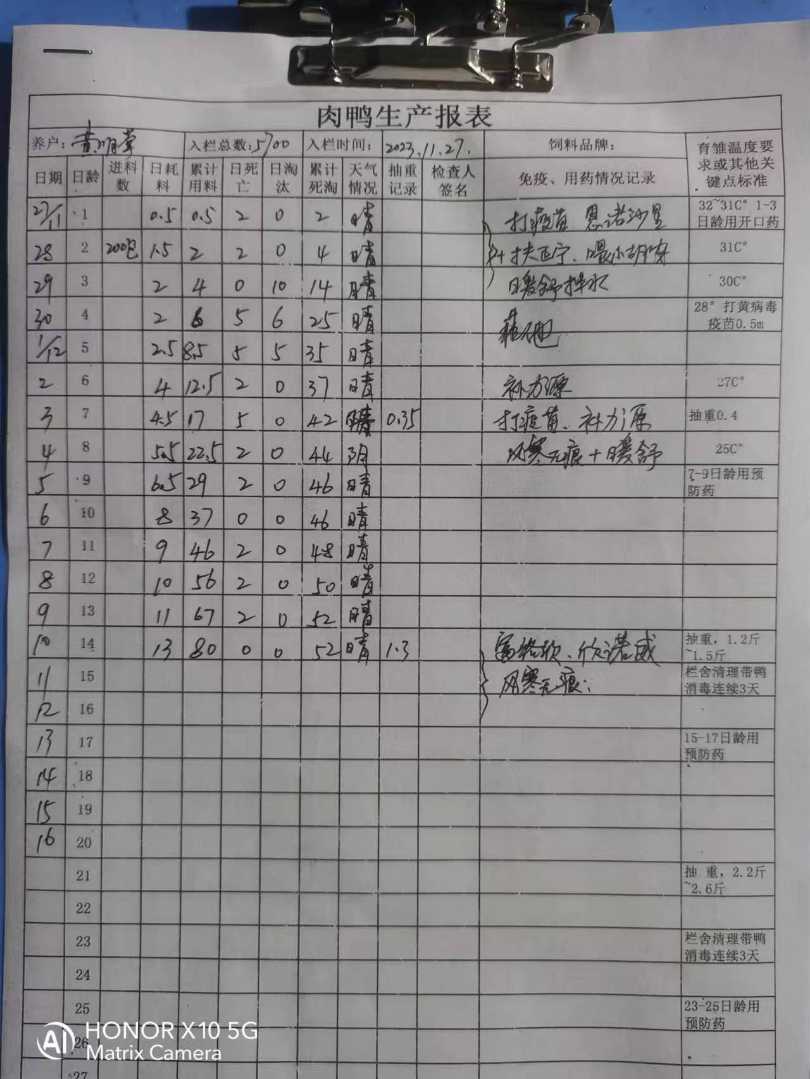 肉鸭生产报表
养户: 入栏总数:5700 入栏时间: 2023.11.27. 饲料品牌: 育雏温度要求或其他关键点标准
日期 日龄 进料数 日耗料 累计用料 日死亡 日淘汰 累计死淘 天气情况 抽重记录 检查人签名 免疫、用药情况记录
27/11 1 0.5 0.5 2 0 2 晴 打疫苗 恩诺沙星 32~31C° 1-3日龄用开口药
28 2 200包 1.5 2 2 0 4 晴 31C°
29 3 2 4 0 10 14 晴 暖舒拌水 30C°
30 4 2 6 5 6 25 晴 28° 打黄病毒疫苗0.5m
1/12 5 2.5 8.5 5 5 35 晴
2 6 4 12.5 2 0 37 晴 补力源 27C°
3 7 4.5 17 5 0 42 晴 0.35 打疫苗、补力源 抽重0.4
4 8 5.5 22.5 2 0 44 阴 风寒无痕+暖舒 25C°
5 9 6.5 29 2 0 46 晴 7-9日龄用预防药
6 10 8 37 0 0 46 晴
7 11 9 46 2 0 48 晴
8 12 10 56 2 0 50 晴
9 13 11 67 2 0 52 晴
10 14 13 80 0 0 52 晴 1.3 欣诺威 抽重，1.2斤~1.5斤
11 15 风寒无痕; 栏舍清理带鸭消毒连续3天
12 16
13 17 15-17日龄用预防药
14 18
15 19
16 20
21 抽重，2.2斤~2.6斤
22
23 栏舍清理带鸭消毒连续3天
24
25 23-25日龄用预防药
26
27
AI HONOR X10 5G
Matrix Camera